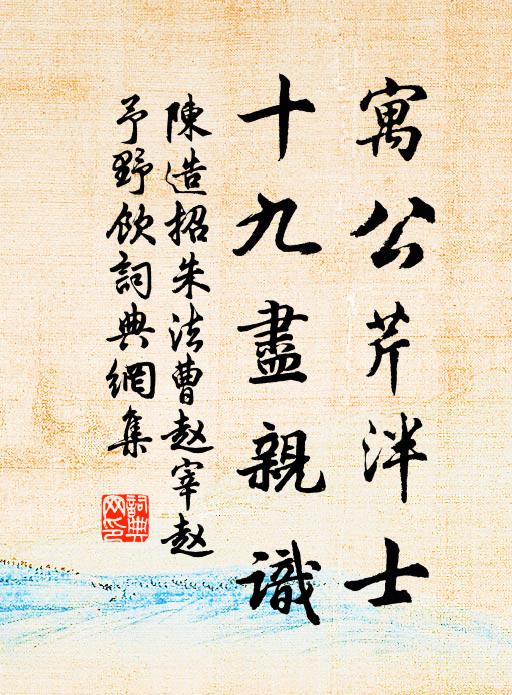 寓公芹泮士
十九盡親識
陳造招朱法曹赵宰赵
予野飲詞典網集
詞典網印